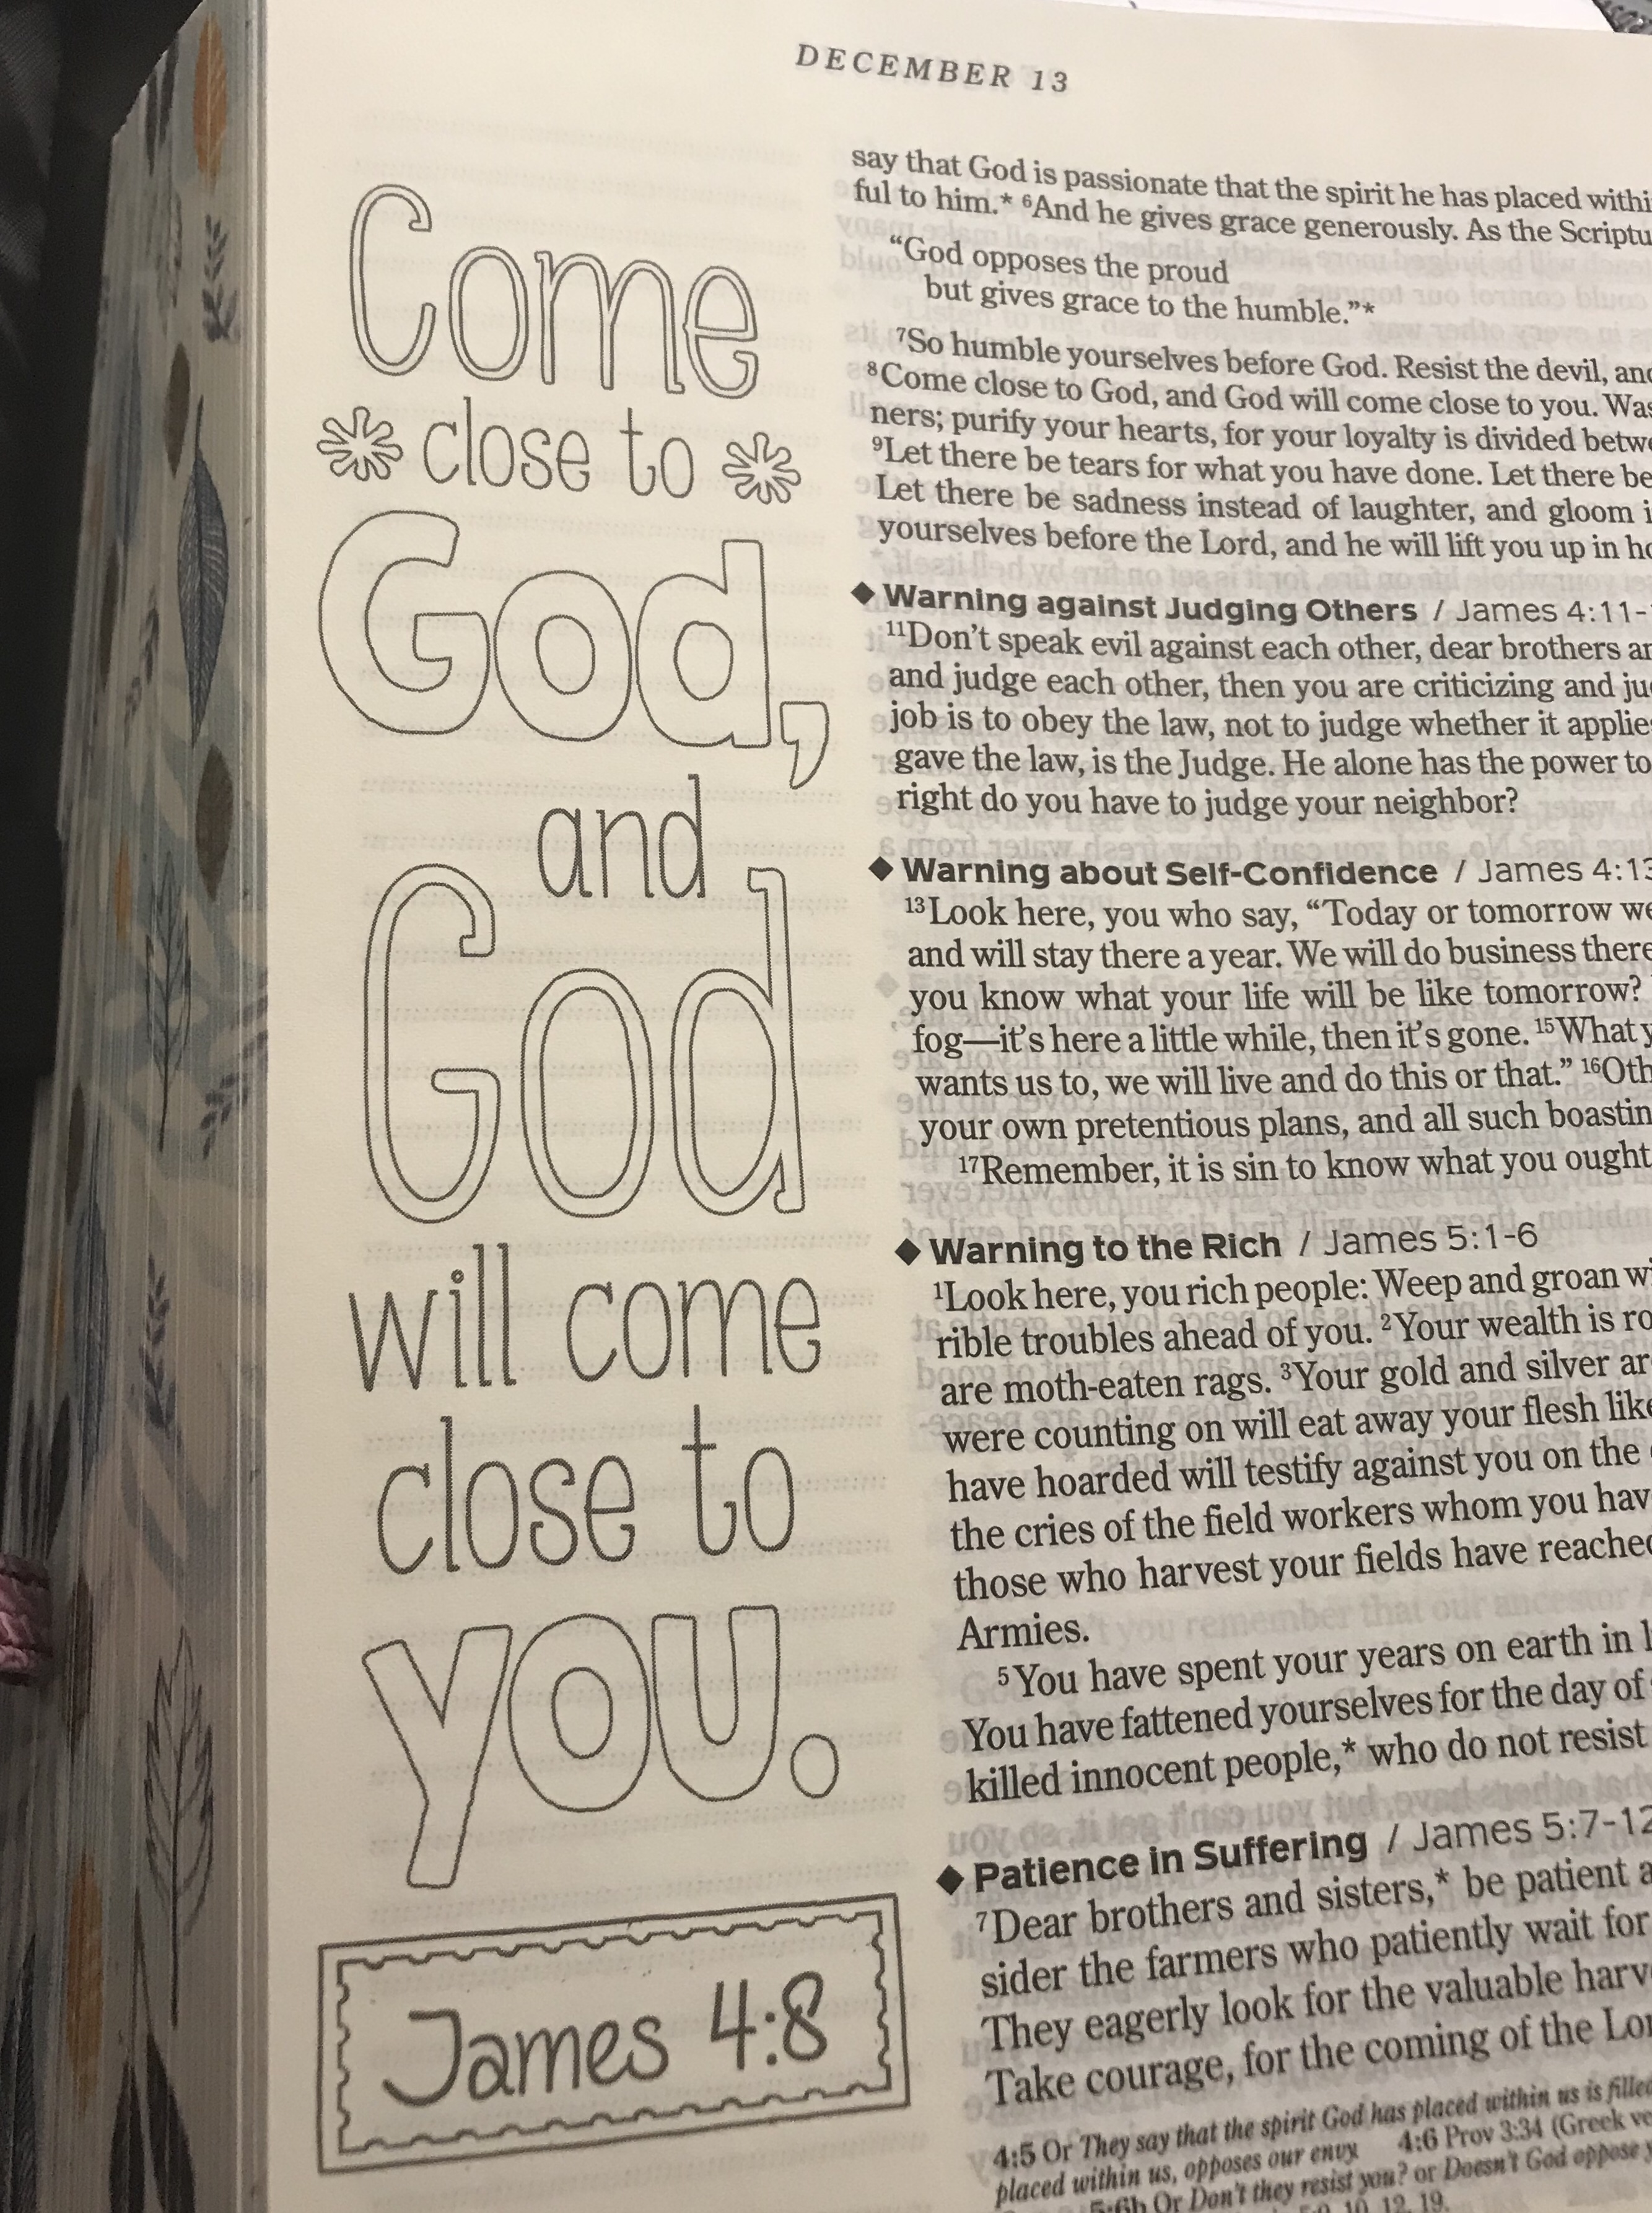 DECEMBER 13
Come
close to
God,
and
God
will come
close to
you.
James 4:8
say that God is passionate that the spirit he has placed withi
ful to him.* 6And he gives grace generously. As the Scriptu
“God opposes the proud
but gives grace to the humble.”*
7So humble yourselves before God. Resist the devil, and
8Come close to God, and God will come close to you. Was
ners; purify your hearts, for your loyalty is divided betwe
9Let there be tears for what you have done. Let there be
Let there be sadness instead of laughter, and gloom i
yourselves before the Lord, and he will lift you up in ho
◆ Warning against Judging Others / James 4:11-
11Don't speak evil against each other, dear brothers an
and judge each other, then you are criticizing and ju
job is to obey the law, not to judge whether it applie
gave the law, is the Judge. He alone has the power to
right do you have to judge your neighbor?
◆ Warning about Self-Confidence / James 4:13
13Look here, you who say, “Today or tomorrow we
and will stay there a year. We will do business there
you know what your life will be like tomorrow?
fog—it's here a little while, then it's gone. 15What y
wants us to, we will live and do this or that.” 16Oth
your own pretentious plans, and all such boastin
17Remember, it is sin to know what you ought
◆ Warning to the Rich / James 5:1-6
1Look here, you rich people: Weep and groan wi
rible troubles ahead of you. 2Your wealth is ro
are moth-eaten rags. 3Your gold and silver ar
were counting on will eat away your flesh like
have hoarded will testify against you on the
the cries of the field workers whom you hav
those who harvest your fields have reache
Armies.
5You have spent your years on earth in l
You have fattened yourselves for the day of
killed innocent people,* who do not resist
◆ Patience in Suffering / James 5:7-12
7Dear brothers and sisters,* be patient a
sider the farmers who patiently wait for
They eagerly look for the valuable harv
Take courage, for the coming of the Lor
4:5 Or They say that the spirit God has placed within us is filled
placed within us, opposes our envy. 4:6 Prov 3:34 (Greek ve
5:6b Or Don't they resist you? or Doesn't God oppose y
10, 12, 19.